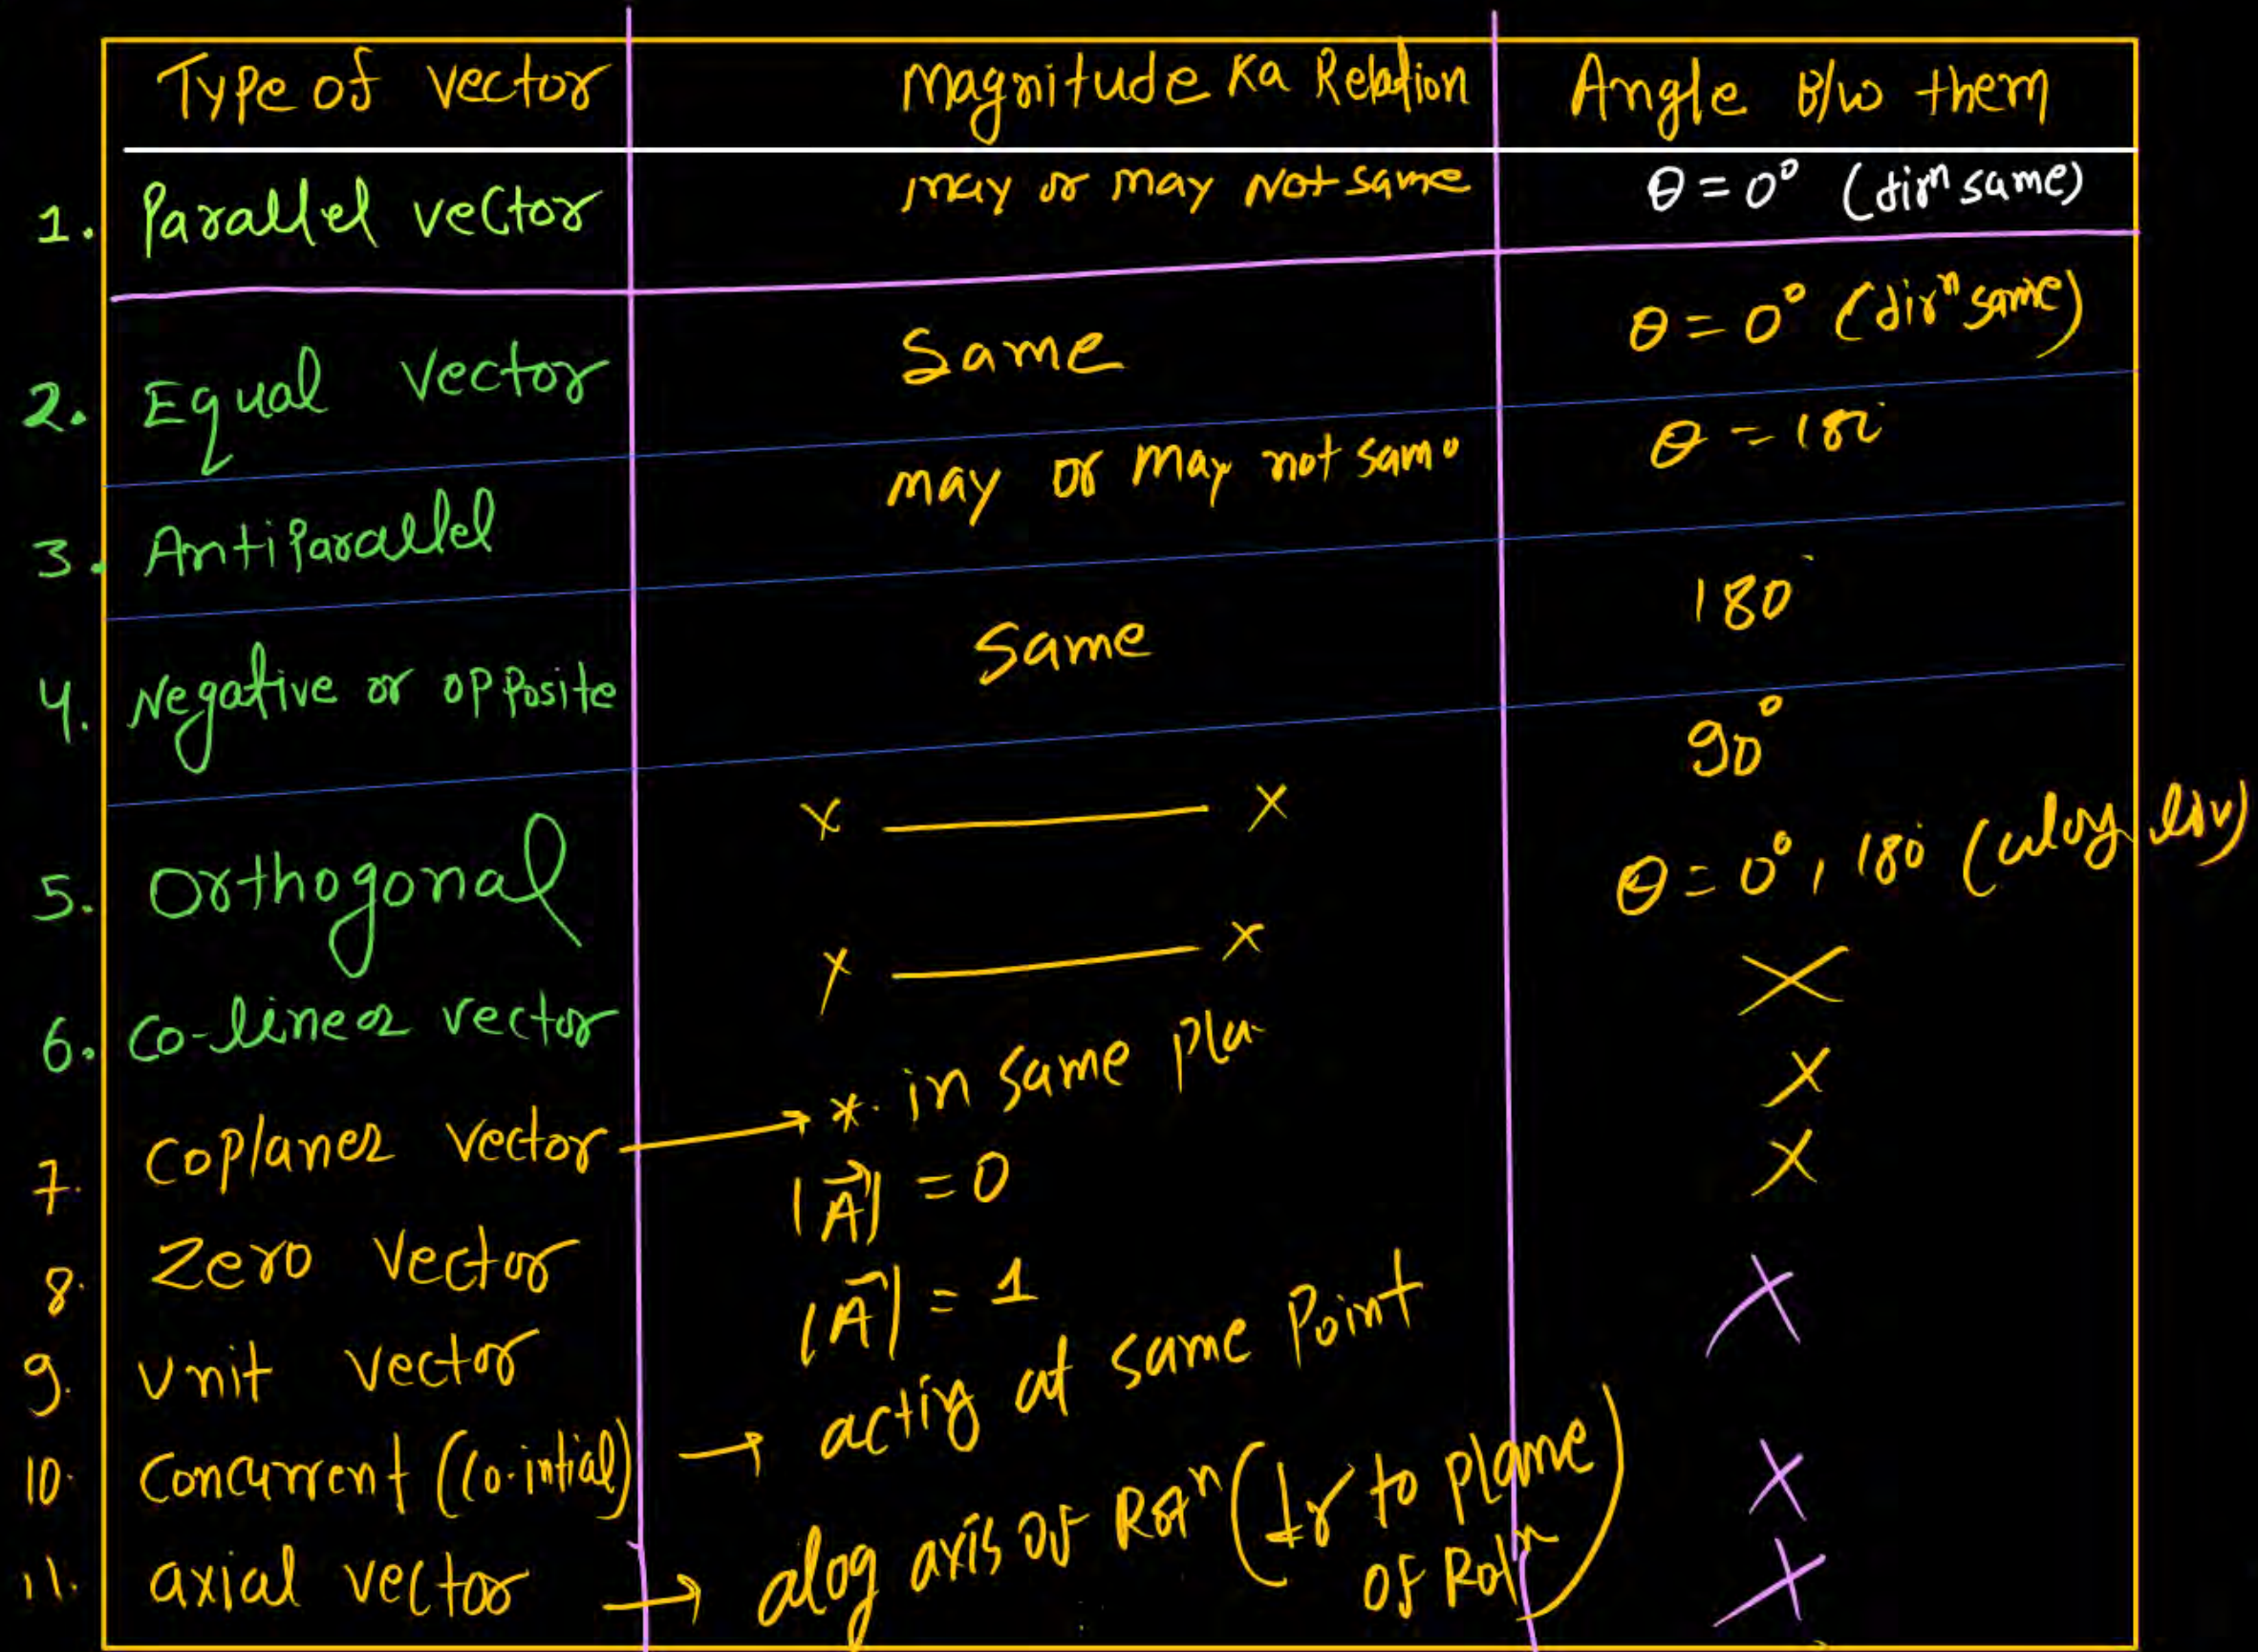 Type of vector Magnitude Ka Relation Angle B/w them
1. Parallel vector may or may Not same θ = 0° (dirⁿ same)
2. Equal Vector Same θ = 0° (dirⁿ same)
3. Antiparallel may or may not same θ = 180°
4. Negative or opposite Same 180°
5. Orthogonal x — x 90°
6. Co-linear vector x — x θ = 0°, 180°
7. Coplaner vector → * in same X
8. Zero vector |A⃗| = 0 X
9. Unit vector |A⃗| = 1 X
10. Concurrent (Co-intial) → acting at same Point X
11. axial vector → alog axis of Rotⁿ (⊥r to plane X
of Rotⁿ) X